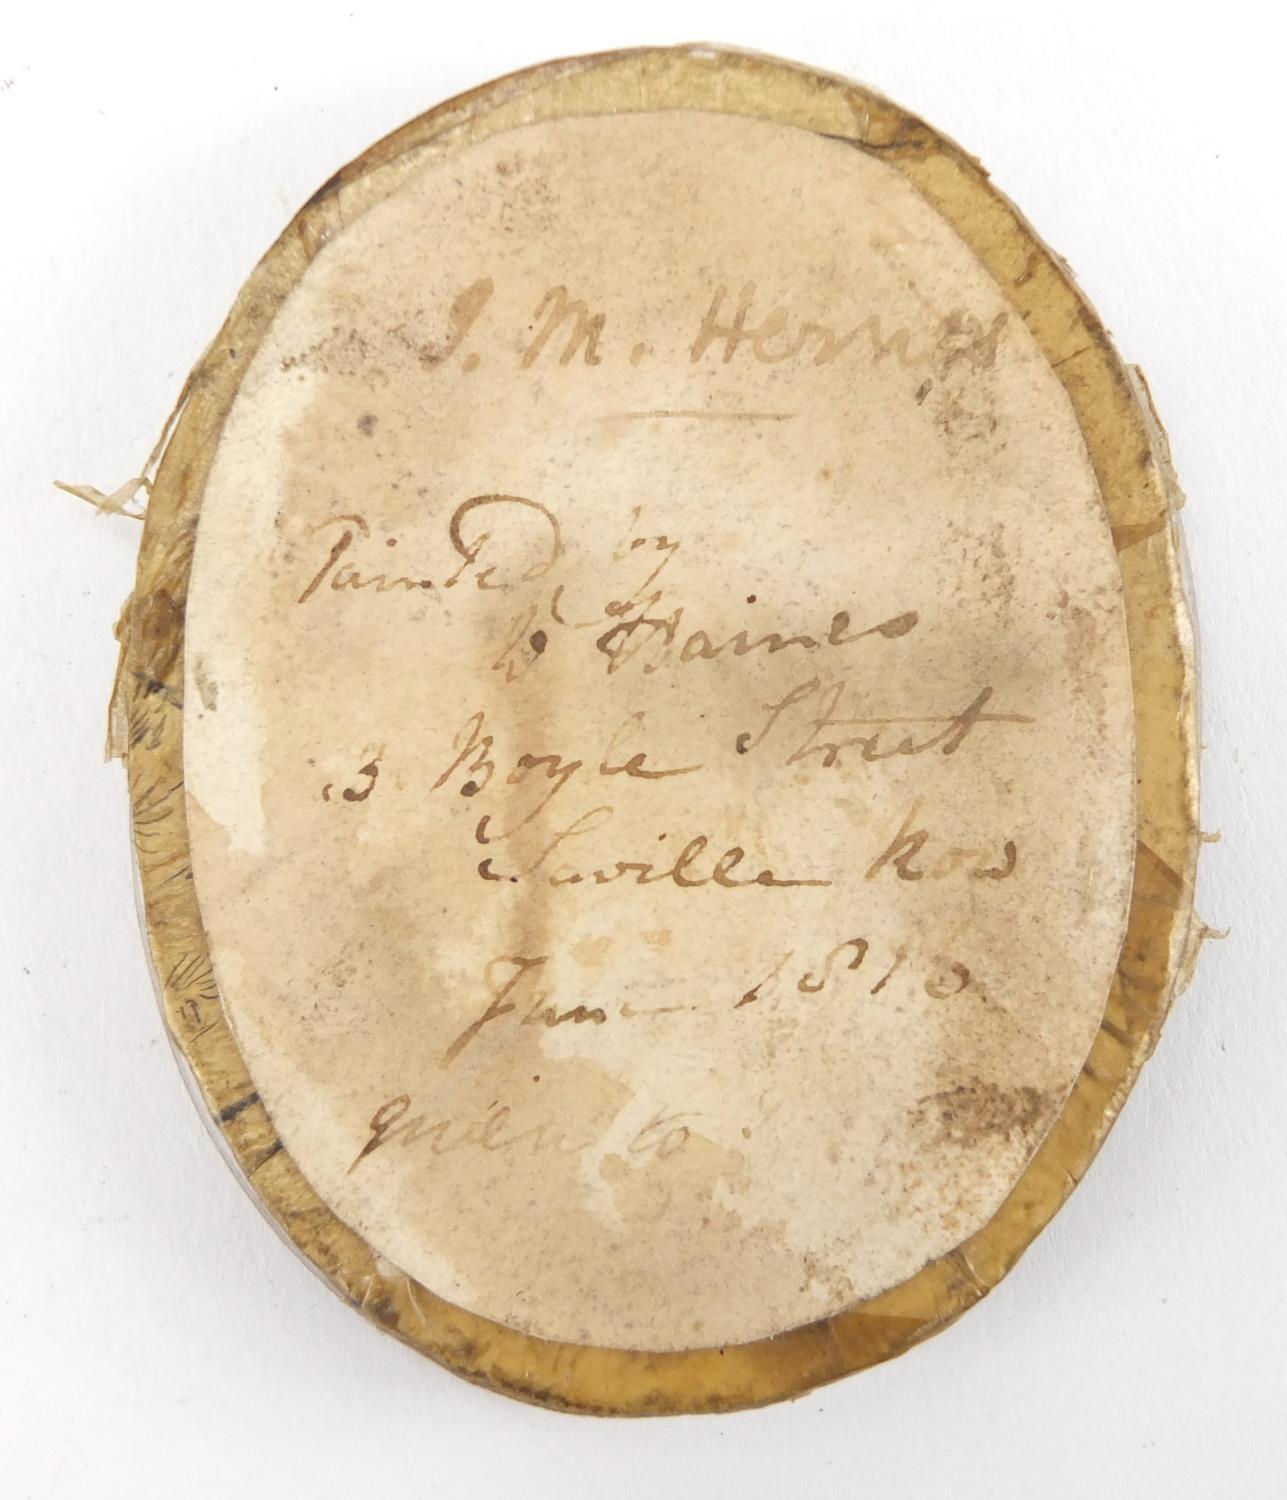 J. M. Hernes
Painted by
W Haines
3 Boyle Street
Saville Row
June 1810
to